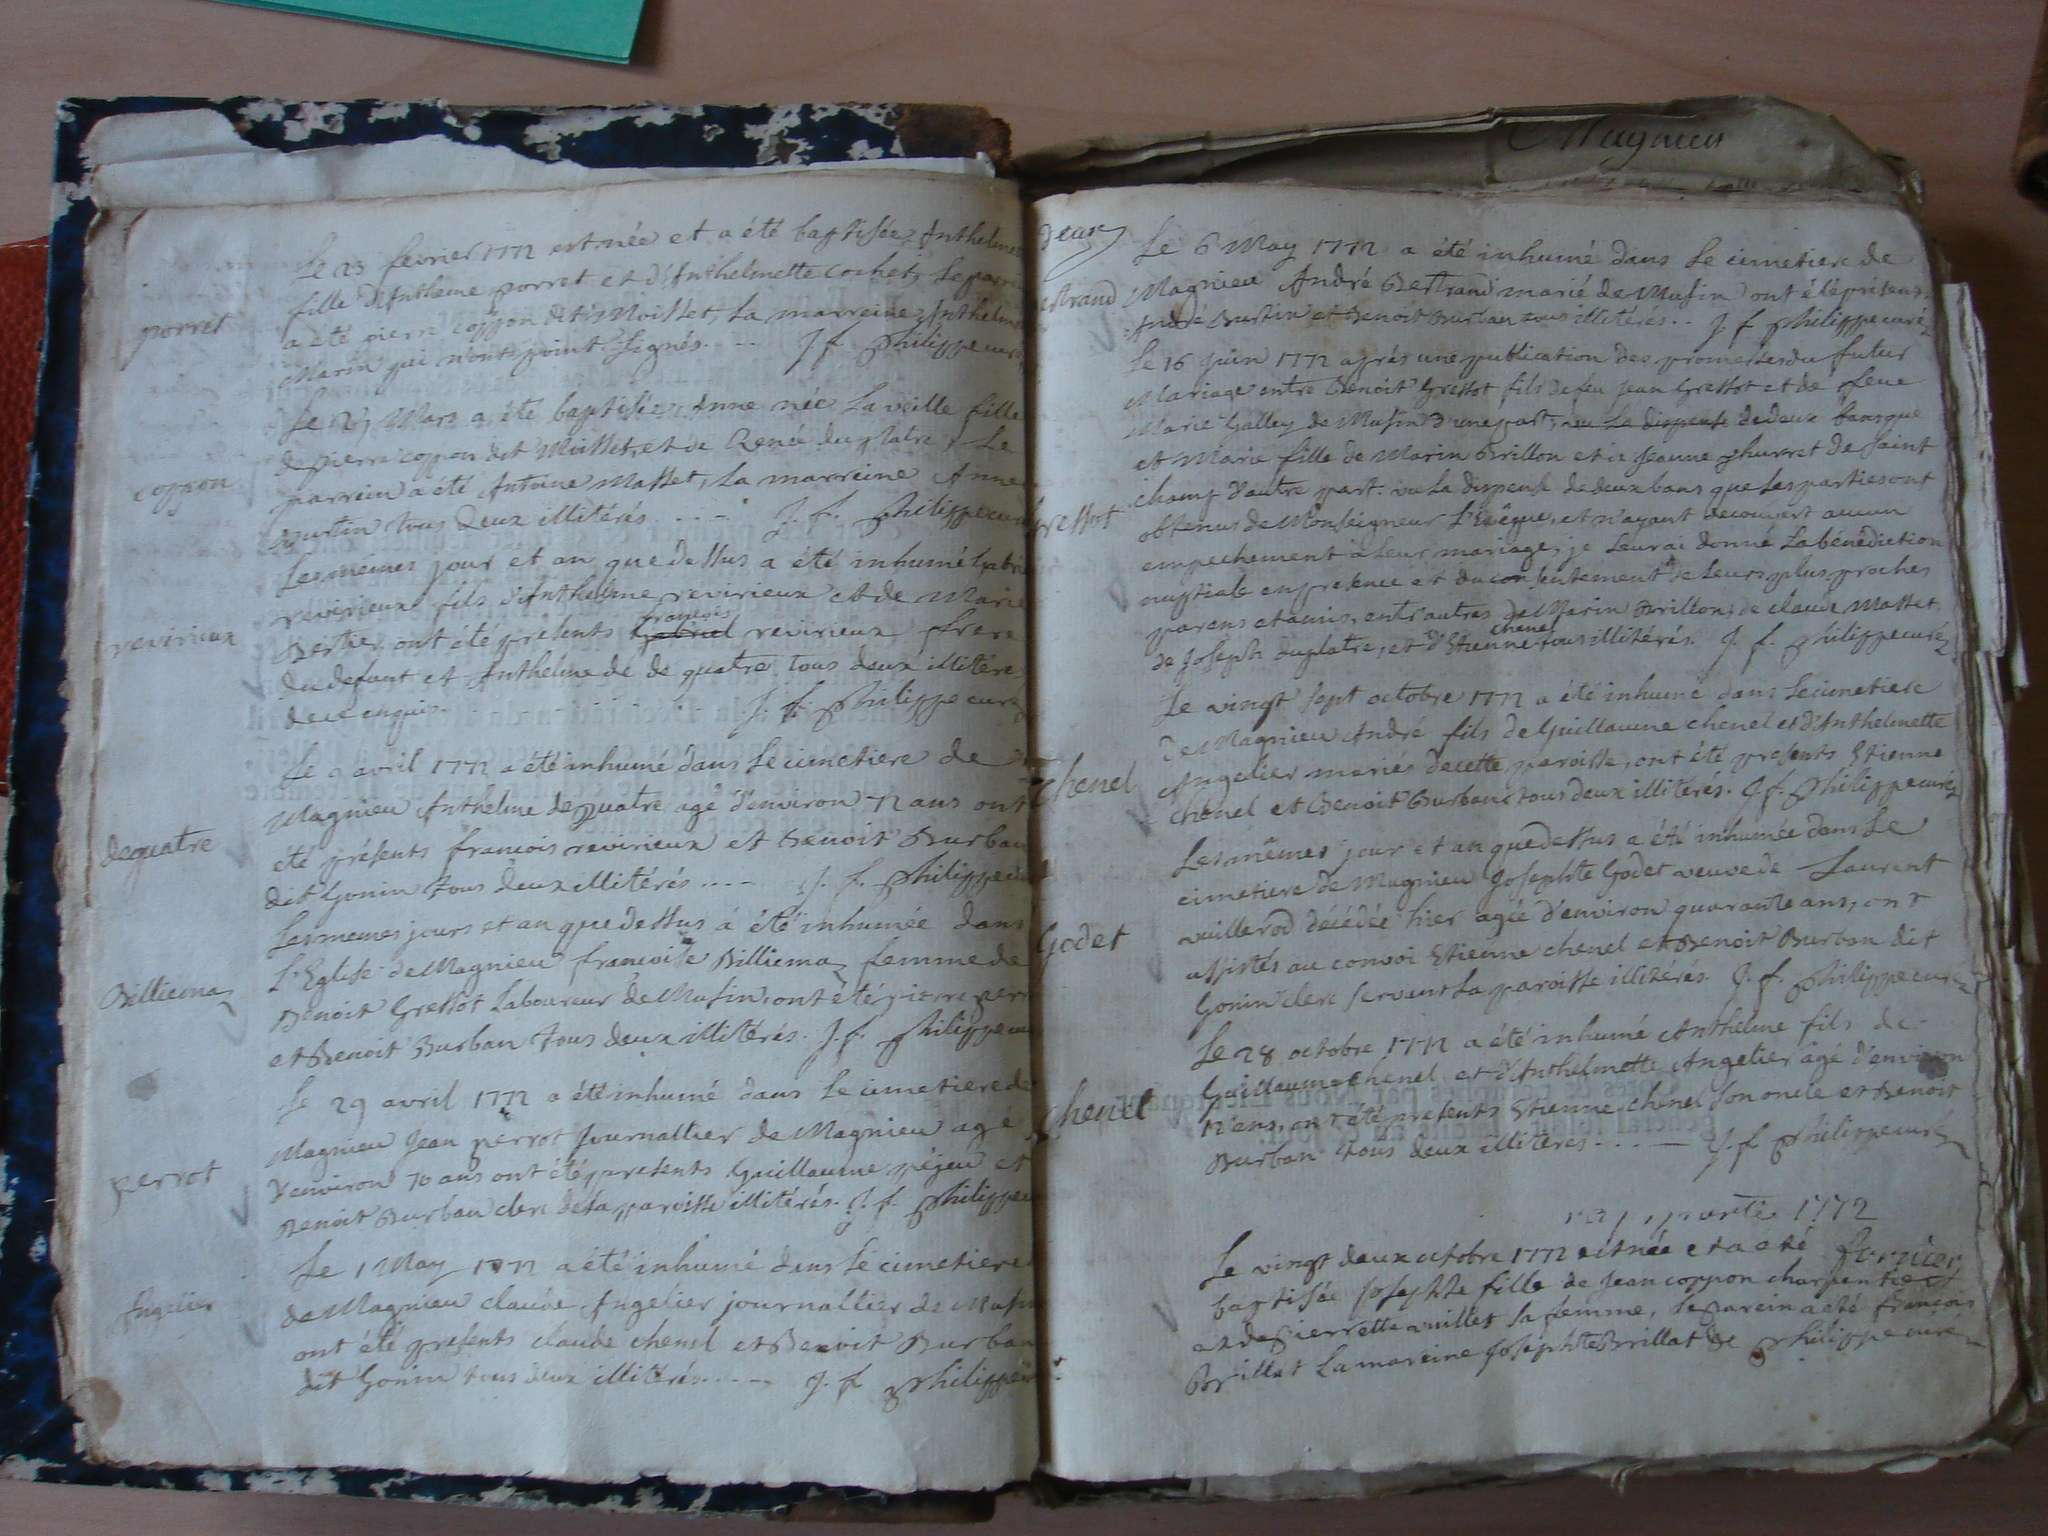 porret
Le 23 fevrier 1772 est née et a été baptisée Anthelmette
fille d'Anthelme porret et d'Anthelmette cochet, le parrein
a été pierre coppon dit Moisset, La marreine Anthelmette
Marin qui n'ont point signés. -- J. f. philippe curé
coppon
Le 27 Mars a été baptisée Anne née La veille fille
de pierre coppon dit Moisset, et de Renée duplatre, Le
parrein a été Antoine Masset, La marreine Anne
Burtin tous deux illitérés. ... - J. f. philippe curé
revirieux
Les mêmes jour et an que dessus a été inhumé Gabriel
revirieux fils d'Anthelme revirieux et de Marie
Bertier, ont été presents françois revirieux frere
du defunt et Anthelme de quatre tous deux illitérés
de ce enquis. J. f. philippe curé
dequatre
Le 9 avril 1772 a été inhumé dans le cimetiere de
Magnieu Anthelme dequatre agé d'environ 72 ans ont
été présents francois revirieux et Benoit Burban
dit Gonin tous deux illitérés .... J. f. philippe curé
Billiema
Les memes jours et an que dessus a été inhumée dans
L'Eglise de Magnieu francoise Billiema femme de
Benoit Gressot Laboureur de Musin, ont été pierre perret
et Benoit Burban tous deux illitérés. J. f. philippe curé
perrot
Le 29 avril 1772 a été inhumé dans le cimetiere de
Magnieu Jean perrot Journallier de Magnieu agé
d'environ 70 ans ont été presents Guillaume péjeu et
Benoit Burban clerc de la paroisse illitérés. J. f. philippe curé
Angelier
Le 1 May 1772 a été inhumé dans le cimetiere
de Magnieu claude Angelier journallier de Musin
ont été presents claude chenel et Benoit Burban
dit Gonin tous deux illitérés.... J. f. philippe
Magnieu
deux
Bertrand
Le 6 May 1772 a été inhumé dans le cimetiere de
Magnieu André Bertrand marié de Musin ont été présens
André Burtin et Benoit Burban tous illitérés.. J. f. philippe curé
Gressot
Le 16 juin 1772 après une publication des promesses du futur
Mariage entre Benoit Gressot fils de feu Jean Gressot et de feue
Marie Galley de Musin d'une part, vu La dispense de deux bans que
et Marie fille de Marin Brillon et de Jeanne thurret de saint
champ d'autre part: vu La dispense de deux bans que Les parties ont
obtenus de Monseigneur L'Evêque, et n'ayant decouvert aucun
empechement à Leur mariage, je Leur ai donné La bénédiction
nuptiale en presence et du consentement de Leurs plus proches
parens et amis, entr'autres de Marin Brillon, de claude Masset
de Joseph duplatre, et d'Etienne chenel tous illitérés. J. f. philippe curé
chenel
Le vingt sept octobre 1772 a été inhumé dans le cimetiere
de Magnieu André fils de Guillaume chenel et d'Anthelmette
Angelier mariés de cette paroisse, ont été presents Etienne
chenel et Benoit Burban tous deux illitérés. J. f. philippe curé
Godet
Les mêmes jour et an que dessus a été inhumée dans Le
cimetiere de Magnieu Josephte Godet veuve de Laurent
vuillerod décédée hier agée d'environ quarante ans, ont
assistés au convoi Etienne chenel et Benoit Burban dit
Gonin clerc servant La paroisse illitérés. J. f. philippe curé
chenel
Le 28 octobre 1772 a été inhumé Anthelme fils de
Guillaume chenel et d'Anthelmette Angelier agé d'environ
12 ans, ont été presents Etienne chenel son oncle et Benoit
Burban tous deux illiteres... — J. f. philippe curé
1772
Le vingt deux octobre 1772 est née et a été
baptisée Josephte fille de Jean coppon charpentier
et de pierrette vuillet sa femme, le parein a été françois
Brillat La mareine Josephte Brillat philippe curé